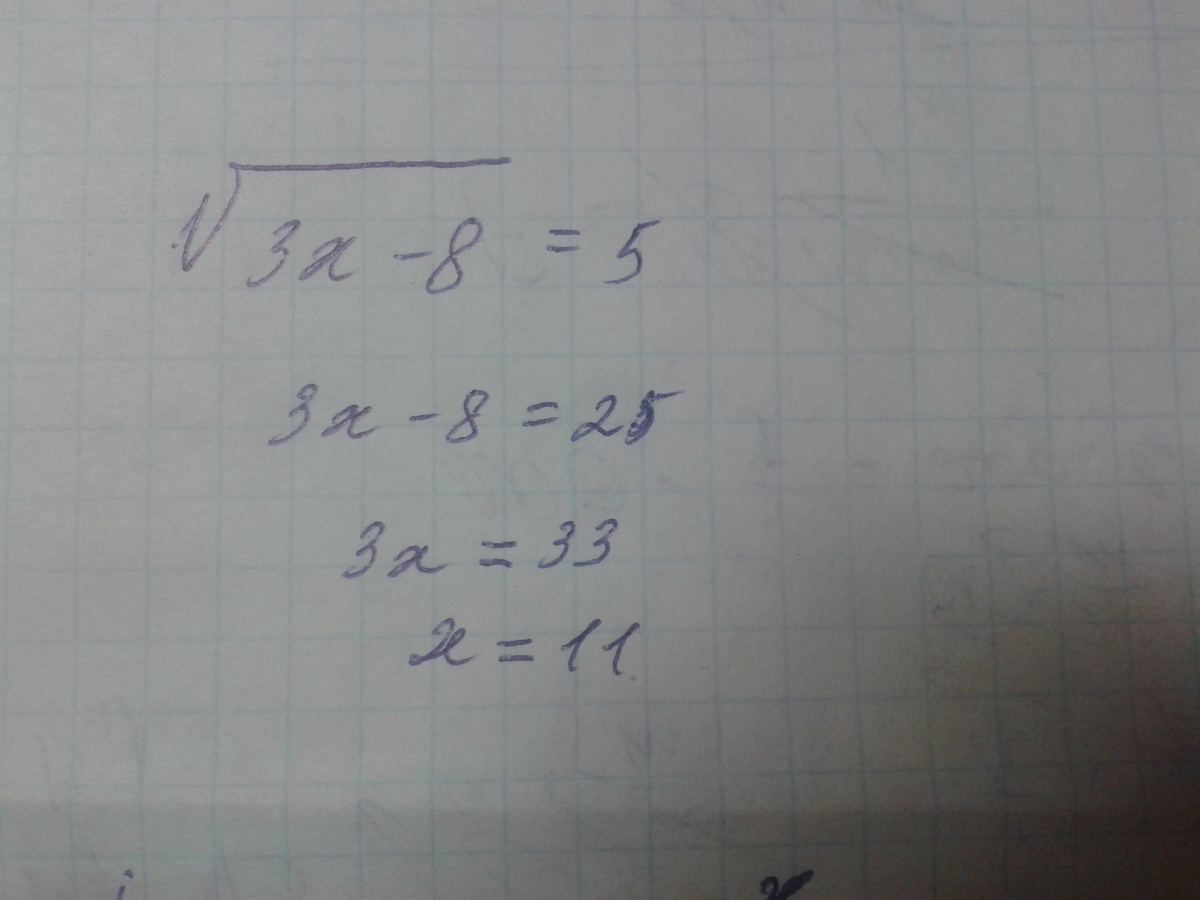 √(3x - 8) = 5
3x - 8 = 25
3x = 33
x = 11